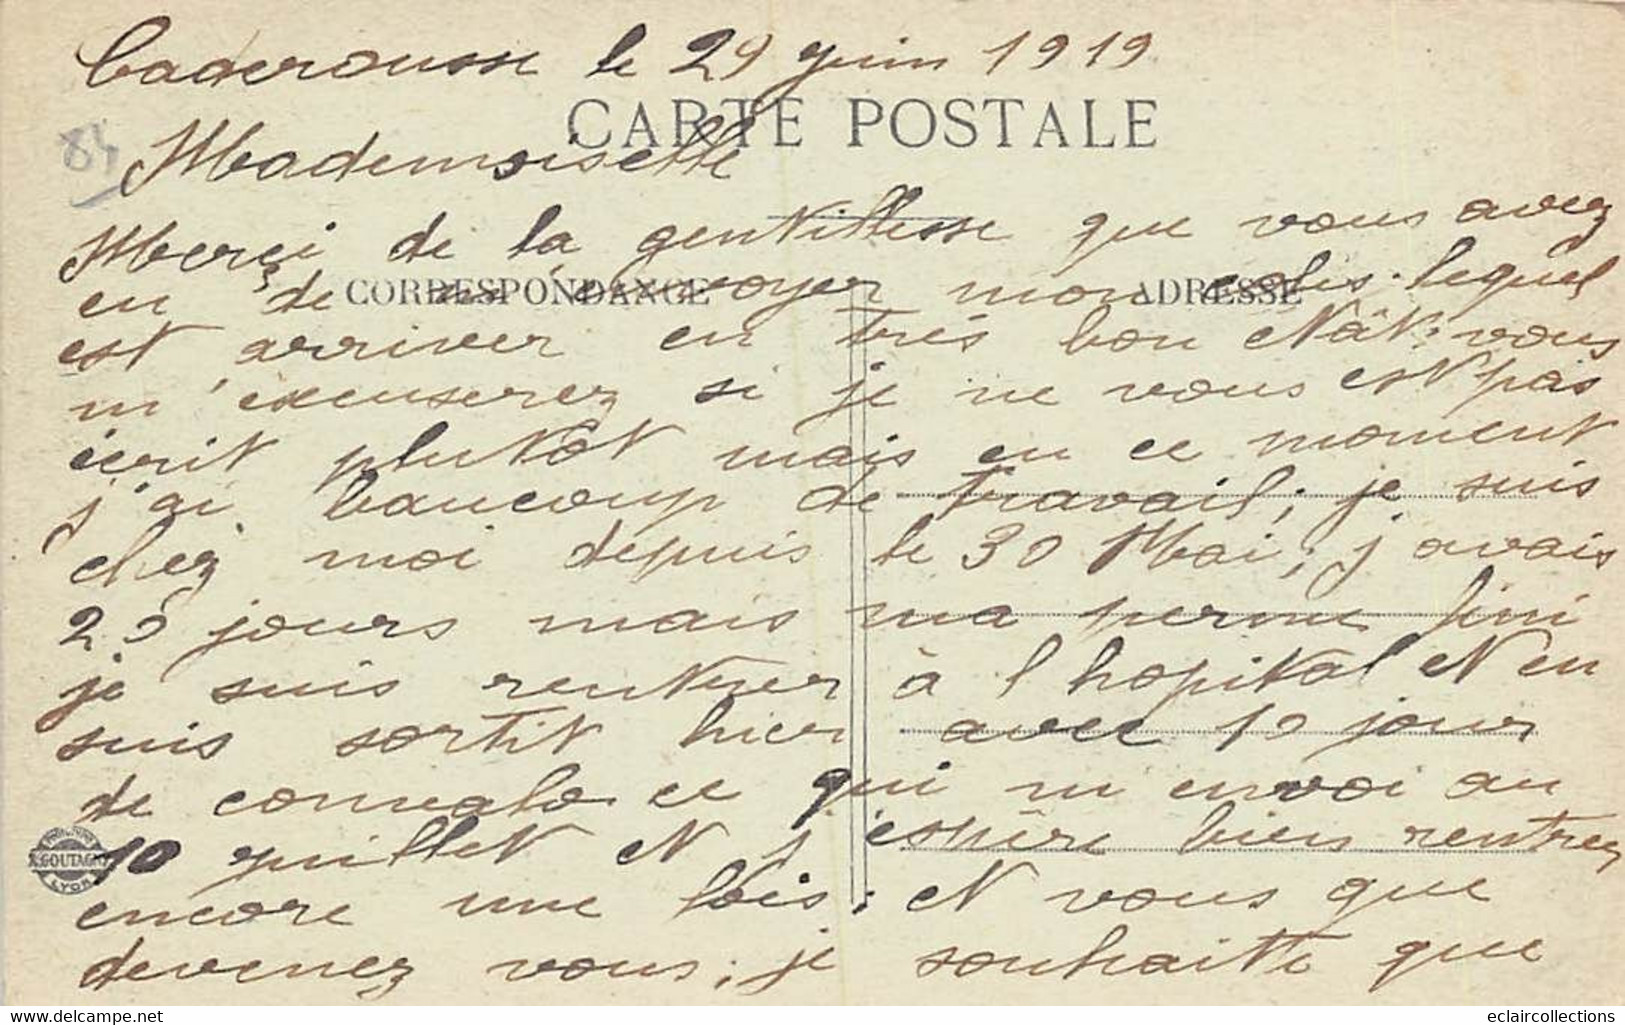 Caderousse le 29 Juin 1919
CARTE POSTALE
84
Mademoiselle
Merçi de la gentillesse que vous avez
CORRESPONDANCE ADRESSE
en de envoyer mon colis. lequel
est arriver en trés bon etât: vous
m'excuserez si je ne vous est pas
écrit plutôt mais en ce moment
j'ai beaucoup de travail; je suis
chez moi depuis le 30 Mai; j avais
25 jours mais ma perme fini
je suis rentrer à l hopital et en
suis sortit hier avec 10 jour
de convalo ce qui m envoi au
10 juillet et j'espère bien rentrez
GOUTAGNY
LYON
encore une fois; et vous que
devenez vous; je souhaitte que
www.delcampe.net
eclaircollections